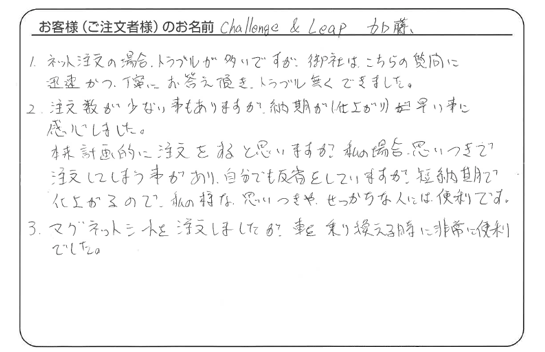 お客様（ご注文者様）のお名前 Challenge & Leap 加藤、
1. ネット注文の場合、トラブルが多いですが、御社は、こちらの質問に
迅速かつ、丁寧にお答え頂き、トラブル無くできました。
2. 注文数が少ない事もありますが、納期が（仕上がり）が早い事に
感心しました。
計画的に注文をすると思いますが、私の場合、思いつきで
注文してしまう事があり、自分でも反省をしていますが、短納期で
仕上がるので、私の様な、思いつきや、せっかちな人には、便利です。
3. マグネットシートを注文しましたが、車を乗り換える時に非常に便利
でした。